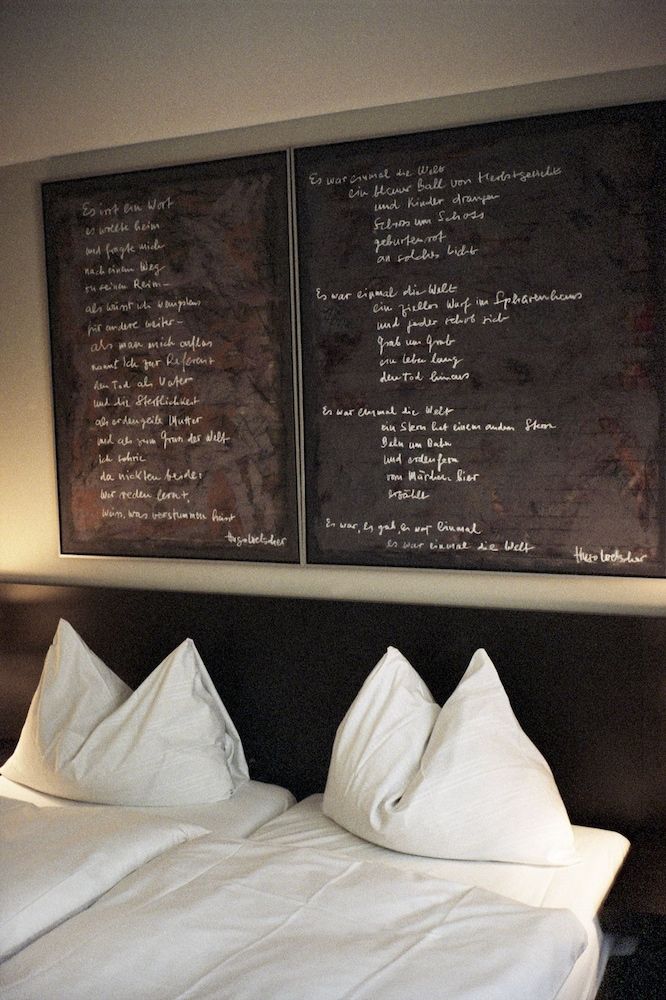 Es irrt ein Wort
es wollte heim
und fragte mich
nach einem Weg
zu seinem Reim –
als wüsst ich wenigstens
für andere weiter –
als man mich auflas
nannt ich zur Referenz
den Tod als Vater
und die Sterblichkeit
als Mutter
und als zum Grun der Welt
ich schrie
da nickten beide:
wer reden lernt,
weiss, was verstummen heisst
Hugo Loetscher
Es war einmal die Welt
ein blauer Ball von
und Kinder drangen
Schoss um Schoss
geburtenrot
an solches Licht
Es war einmal die Welt
ein zielloser Wurf im Sphärenhaus
und jeder schob sich
Grab um Grab
ein Leben lang
dem Tod hinaus
Es war einmal die Welt
ein Stern hat einem andern Stern
Bahn um Bahn
und erdenfern
vom Märchen hier
erzählt
Es war, es gab, es war einmal
es war einmal die Welt
Hugo Loetscher